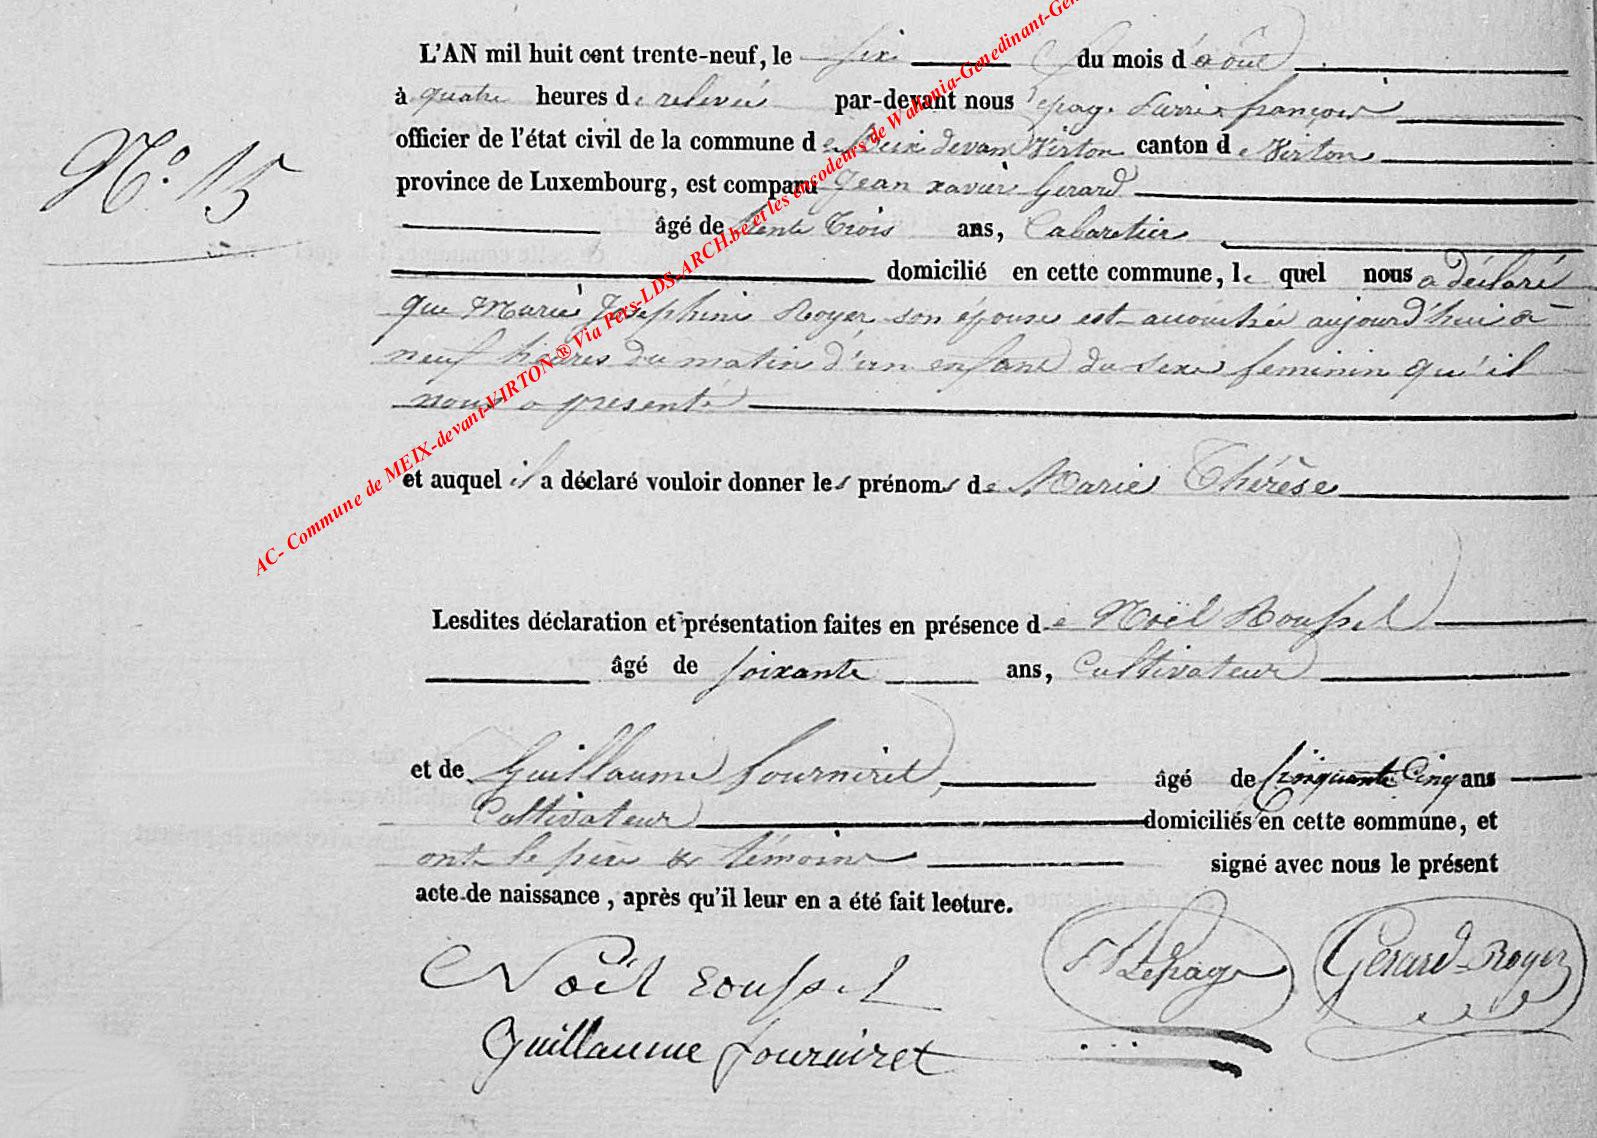 L'AN mil huit cent trente-neuf, le six du mois d'août
à quatre heures de relevée par-devant nous Lepage Pierre françois
N.° 15
officier de l'état civil de la commune de Meix devant Virton canton de Virton
province de Luxembourg, est comparu Jean xavier Gerard
âgé de trente trois ans, Cabaretier
domicilié en cette commune, le quel nous a déclaré
que Marie Josephine Royer son épouse est accouchée aujourd'hui à
neuf heures du matin d'un enfant du sexe feminin qu'il
nous a presenté
et auquel il a déclaré vouloir donner les prénoms de Marie Thérèse
Lesdites déclaration et présentation faites en présence de Noël Roussel
âgé de soixante ans, Cultivateur
et de Guillaume fourniret, âgé de Cinquante Cinq ans
Cultivateur domiciliés en cette commune, et
ont le père & témoins signé avec nous le présent
acte de naissance, après qu'il leur en a été fait lecture.
Noël roussel Lepage Gérard-Royer
Guillaume fourniret
AC- Commune de MEIX-devant-VIRTON ® Via Pers-LDS-ARCH.be et les encodeurs de Wallonia-Genedinant-Gen